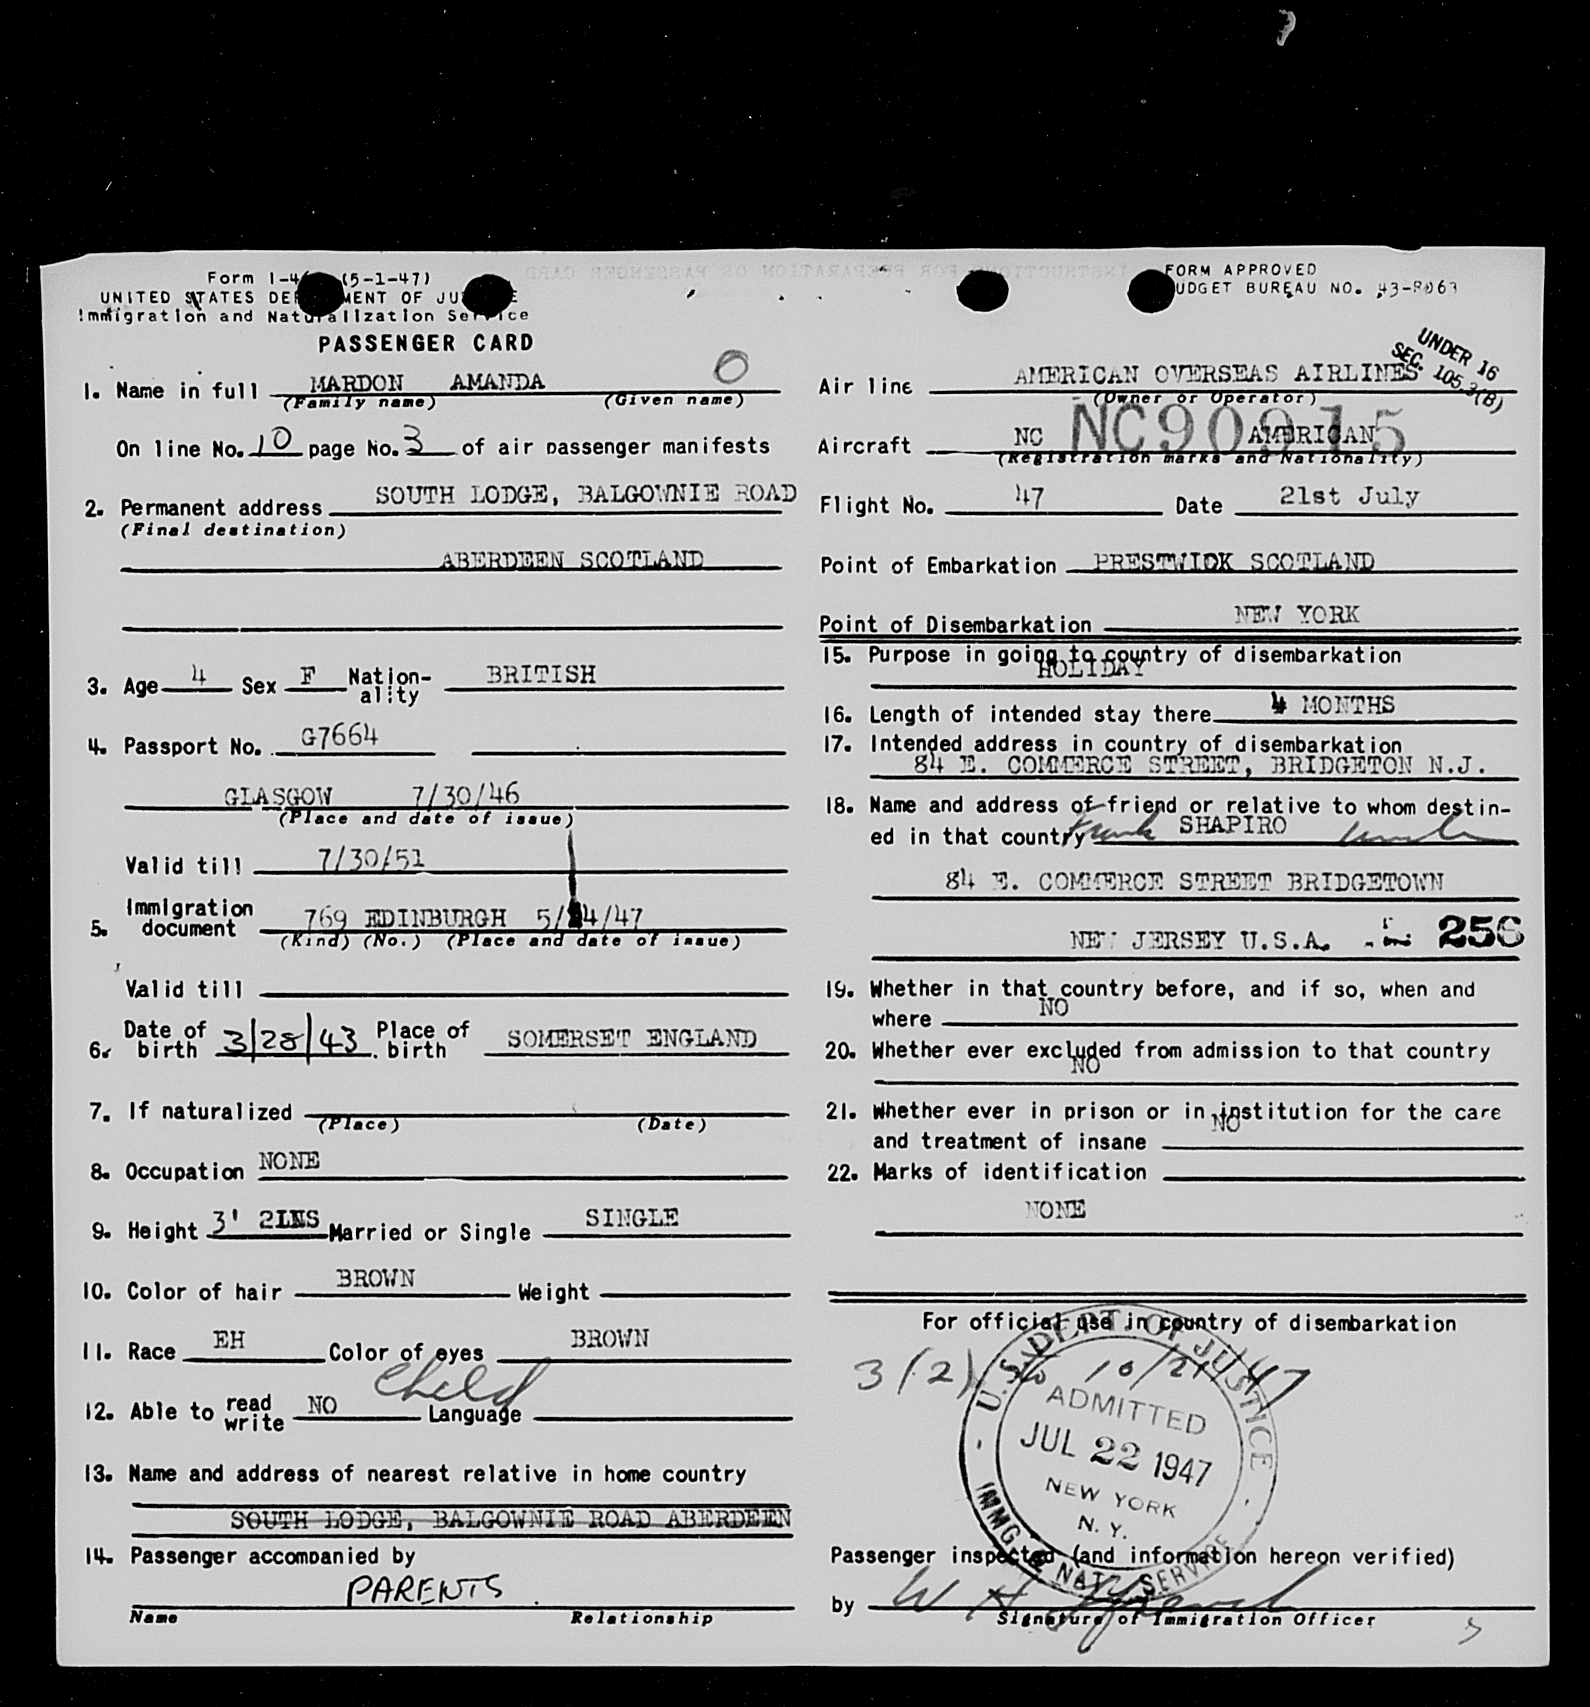 Form I-4 (5-1-47)
UNITED STATES DE MENT OF JU E
Immigration and Naturalization Service
PASSENGER CARD
1. Name in full MARDON AMANDA O
(Family name) (Given name)
On line No. 10 page No. 3 of air passenger manifests
2. Permanent address SOUTH LODGE, BALGOWNIE ROAD
(Final destination)
ABERDEEN SCOTLAND
3. Age 4 Sex F Nation-
ality BRITISH
4. Passport No. G7664
GLASGOW 7/30/46
(Place and date of issue)
Valid till 7/30/51
5. Immigration
document 769 EDINBURGH 5/ 4/47
(Kind) (No.) (Place and date of issue)
Valid till
6. Date of
birth 3/28/43 Place of
birth SOMERSET ENGLAND
7. If naturalized
(Place) (Date)
8. Occupation NONE
9. Height 3' 2INS Married or Single SINGLE
10. Color of hair BROWN Weight
11. Race EH Color of eyes BROWN
Child
12. Able to read
write NO Language
13. Name and address of nearest relative in home country
SOUTH LODGE, BALGOWNIE ROAD ABERDEEN
14. Passenger accompanied by
PARENTS
Name Relationship
FORM APPROVED
UDGET BUREAU NO. 43-R063
UNDER 16
SEC. 105.3(B)
Air line AMERICAN OVERSEAS AIRLINES
(Owner or Operator)
Aircraft NC NC90915 AMERICAN
(Registration marks and Nationality)
Flight No. 47 Date 21st July
Point of Embarkation PRESTWICK SCOTLAND
Point of Disembarkation NEW YORK
15. Purpose in going to country of disembarkation
HOLIDAY
16. Length of intended stay there 4 MONTHS
17. Intended address in country of disembarkation
84 E. COMMERCE STREET, BRIDGETON N.J.
18. Name and address of friend or relative to whom destin-
ed in that country Frank SHAPIRO uncle
84 E. COMMERCE STREET BRIDGETOWN
NEW JERSEY U.S.A. 256
19. Whether in that country before, and if so, when and
where NO
20. Whether ever excluded from admission to that country
NO
21. Whether ever in prison or in institution for the care
and treatment of insane NO
22. Marks of identification
NONE
For official use in country of disembarkation
3(2) to 10/21/47
U.S. DEPT. OF JUSTICE
ADMITTED
JUL 22 1947
NEW YORK
N.Y.
IMMG. & NATZ. SERVICE
Passenger inspected (and information hereon verified)
by W H
Signature of Immigration Officer